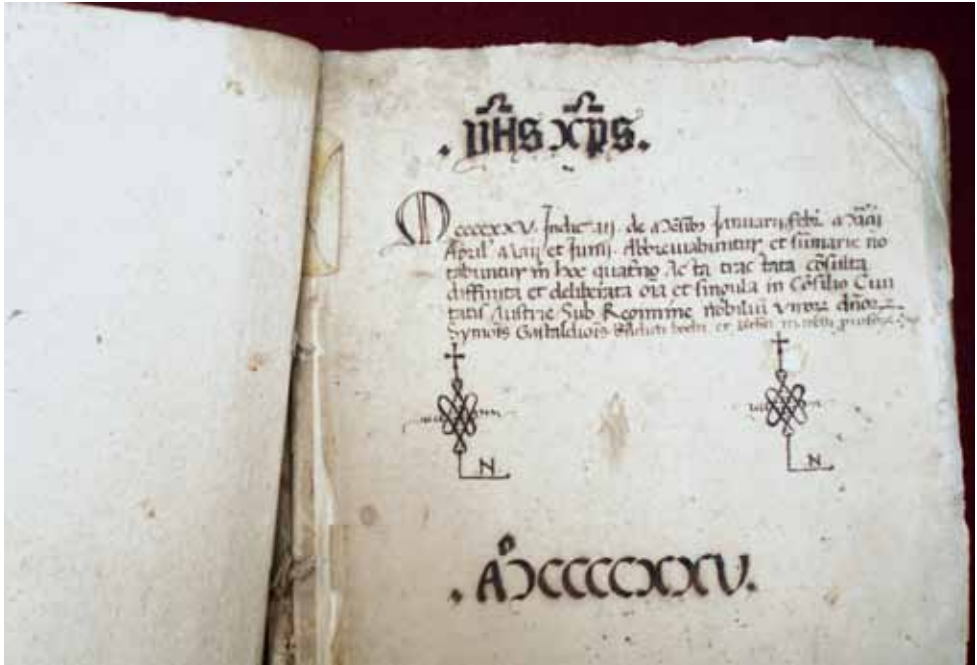 . YH̃S XP̃S.
Mccccxxv. Indic̃ iij. de Mẽsib̃ Januarij, feb̃r. Marcij
April̃ Maij et Junij. Abbreviabuntur et sũmarie no
tabuntur in hoc quat̃no Acta tractata cõsulta
diffinita et deliberata oĩa et singula in Cõsilio Ciui
tatis Austrie Sub Regimine nobiliũ viror̃ dñor̃
Symõis Gastaldiõis
N
N
. Aº MCCCCXXV.